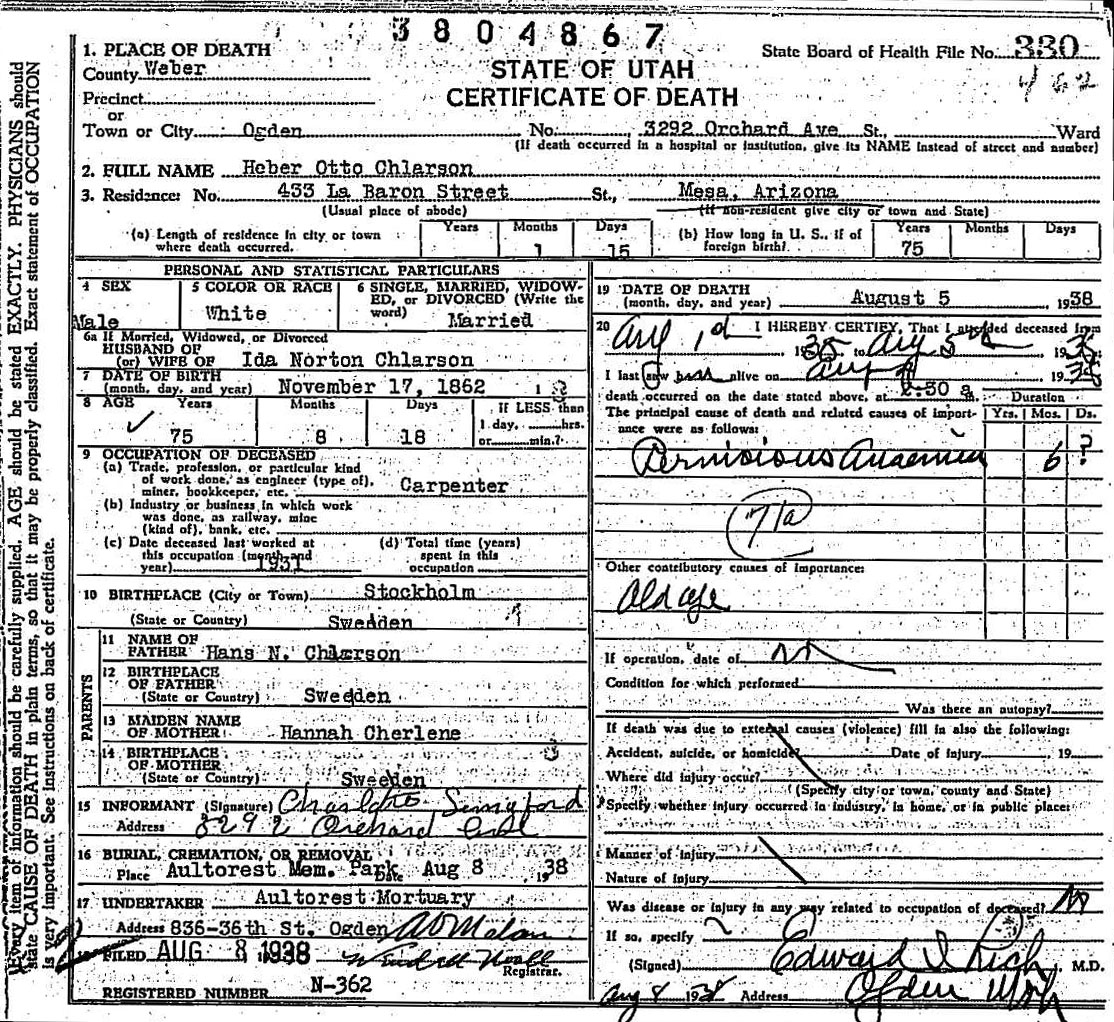 3804867
State Board of Health File No. 330
STATE OF UTAH
CERTIFICATE OF DEATH
1. PLACE OF DEATH
County Weber
Precinct
or
Town or City Ogden No. 3292 Orchard Ave St., Ward
(If death occurred in a hospital or institution, give its NAME instead of street and number)
2. FULL NAME Heber Otto Chlarson
3. Residence: No. 433 La Baron Street St., Mesa, Arizona
(Usual place of abode) (If non-resident give city or town and State)
(a) Length of residence in city or town where death occurred. Years Months 1 Days 15
(b) How long in U. S., if of foreign birth? Years 75 Months Days
PERSONAL AND STATISTICAL PARTICULARS
4 SEX Male
5 COLOR OR RACE White
6 SINGLE, MARRIED, WIDOWED, or DIVORCED (Write the word) Married
6a If Married, Widowed, or Divorced
HUSBAND OF
(or) WIFE OF Ida Norton Chlarson
7 DATE OF BIRTH
(month, day, and year) November 17, 1862
8 AGE Years 75 Months 8 Days 18 If LESS than 1 day, hrs. or min.?
9 OCCUPATION OF DECEASED
(a) Trade, profession, or particular kind of work done, as engineer (type of), miner, bookkeeper, etc. Carpenter
(b) Industry or business in which work was done, as railway, mine (kind of), bank, etc.
(c) Date deceased last worked at this occupation (month and year) 1931
(d) Total time (years) spent in this occupation
10 BIRTHPLACE (City or Town) Stockholm
(State or Country) Sweden
PARENTS
11 NAME OF FATHER Hans N. Chlarson
12 BIRTHPLACE OF FATHER
(State or Country) Sweden
13 MAIDEN NAME OF MOTHER Hannah Cherlene
14 BIRTHPLACE OF MOTHER
(State or Country) Sweden
15 INFORMANT (Signature) Charlotte
Address 3292 Orchard Ave
16 BURIAL, CREMATION, OR REMOVAL
Place Aultorest Mem. Park Date Aug 8 1938
17 UNDERTAKER Aultorest Mortuary
Address 836-36th St, Ogden
FILED AUG 8 1938
Registrar.
REGISTERED NUMBER N-362
19 DATE OF DEATH
(month, day, and year) August 5 1938
20 I HEREBY CERTIFY, That I attended deceased from
Aug 1st 1938 to Aug 5th 1938
I last saw him alive on Aug 1938
death occurred on the date stated above, at 2:30 a m.
Duration
The principal cause of death and related causes of importance were as follows: Yrs. Mos. Ds.
Pernicious Anaemia 6 ?
71a
Other contributory causes of importance:
Old age
If operation, date of no
Condition for which performed
Was there an autopsy?
If death was due to external causes (violence) fill in also the following:
Accident, suicide, or homicide? Date of injury 19
Where did injury occur?
(Specify city or town, county and State)
Specify whether injury occurred in industry, in home, or in public place:
Manner of injury
Nature of injury
Was disease or injury in any way related to occupation of deceased? no
If so, specify
(Signed) Edward I Rich, M.D.
Aug 8 1938 Address Ogden Utah
Every item of information should be carefully supplied. AGE should be stated EXACTLY. PHYSICIANS should
state CAUSE OF DEATH in plain terms, so that it may be properly classified. Exact statement of OCCUPATION
is very important. See instructions on back of certificate.